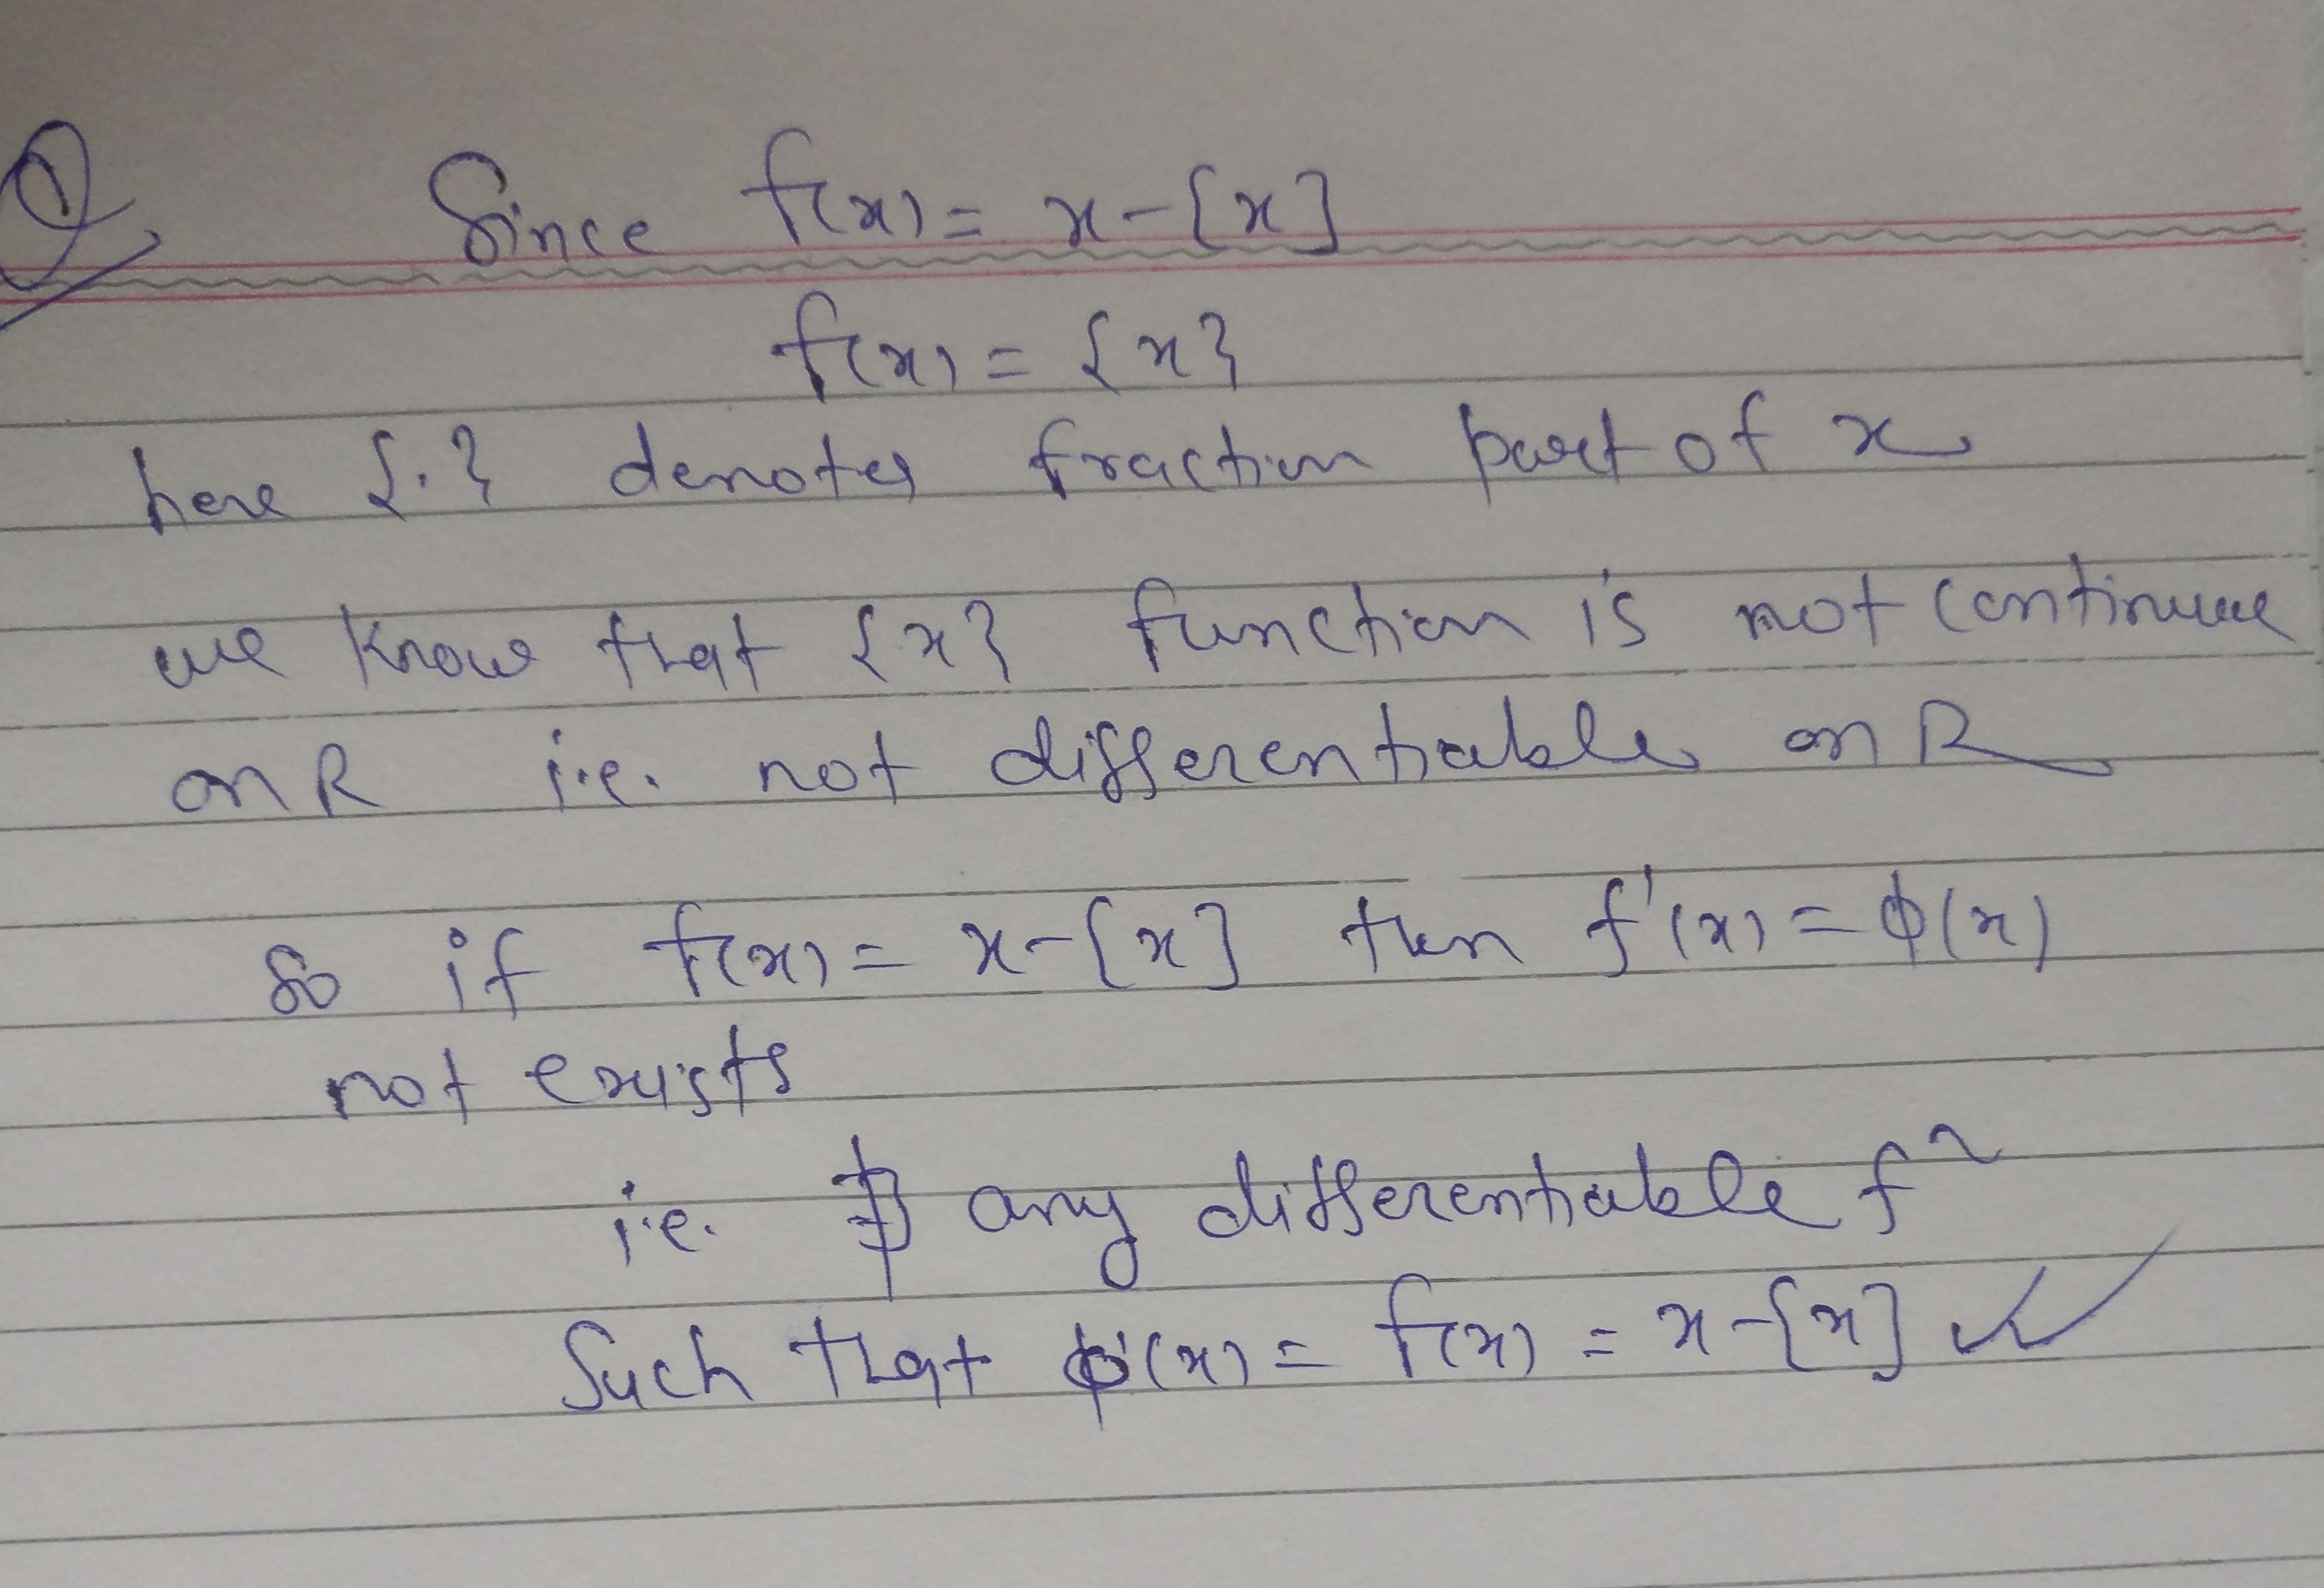 Q Since f(x) = x-[x]
f(x) = {x}
here {.} denotes fraction part of x
we know that {x} function is not continuous
on R i.e. not differentiable on R
So if f(x) = x-[x] then f'(x) = ϕ(x)
not exists
i.e. ∄ any differentiable fⁿ
Such that ϕ'(x) = f(x) = x-[x]